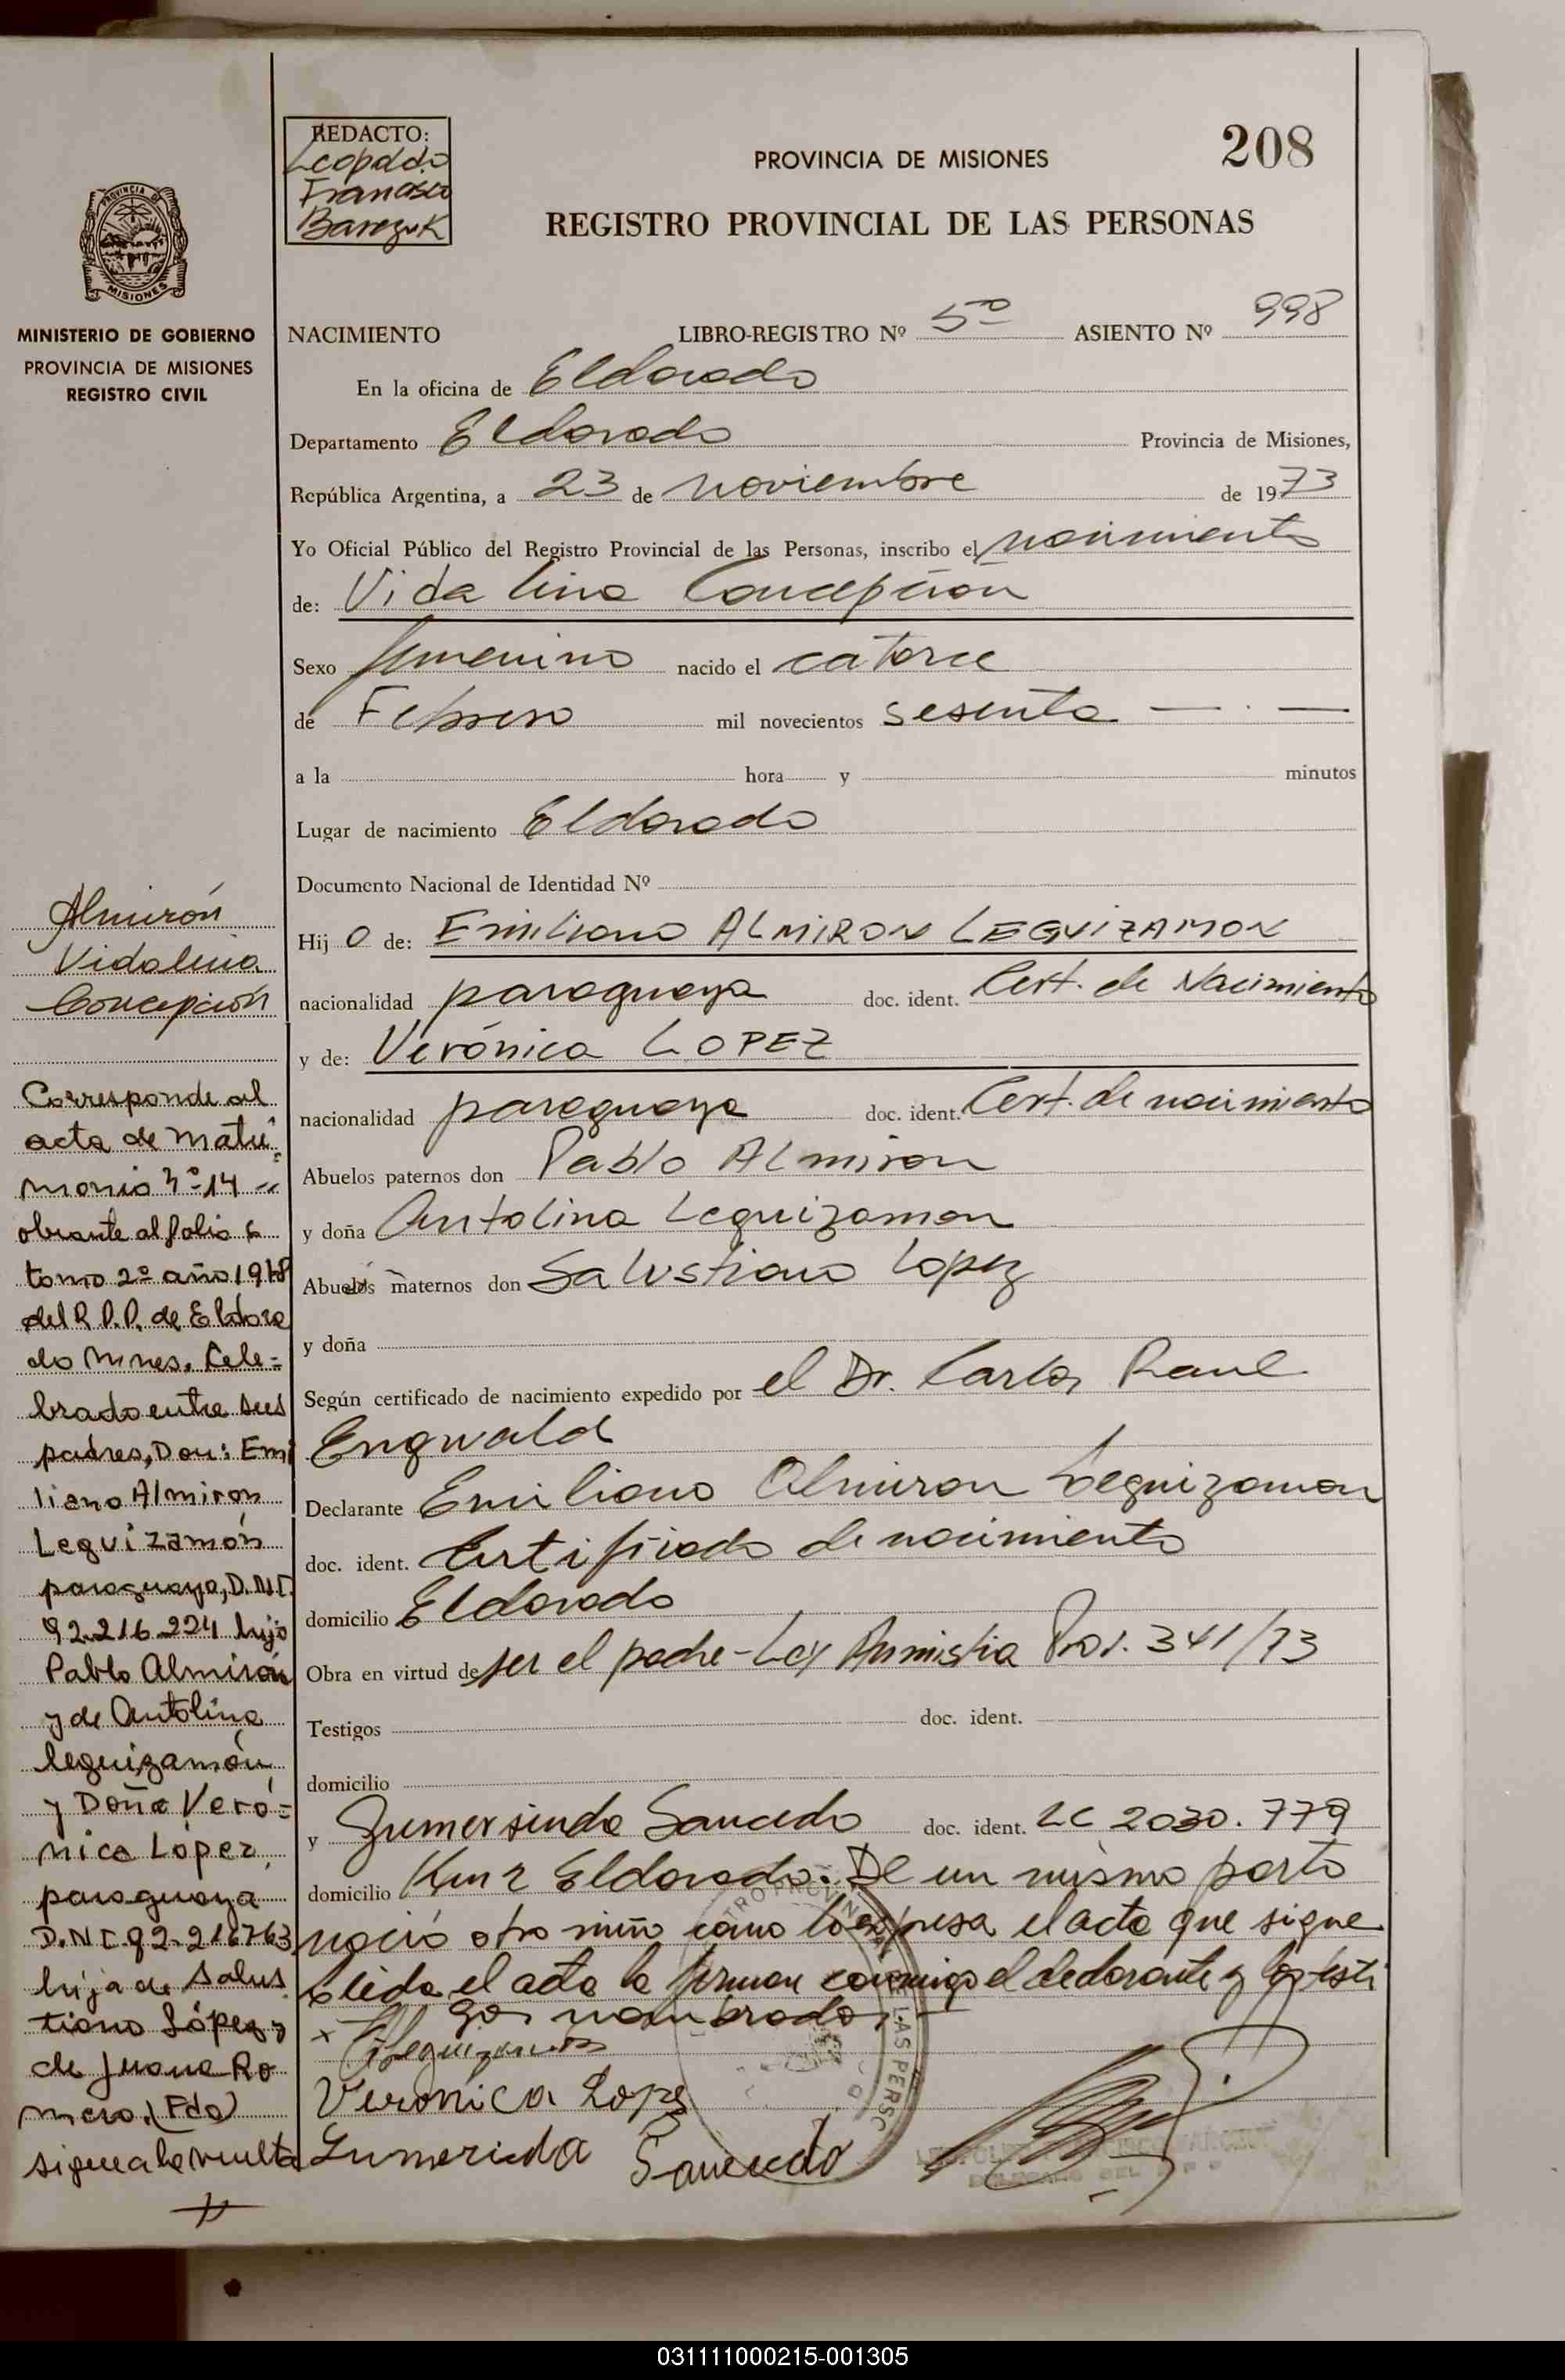 208
REDACTO:
Leopoldo
Francisco
Barczuk
PROVINCIA DE MISIONES
REGISTRO PROVINCIAL DE LAS PERSONAS
PROVINCIA DE
MISIONES
MINISTERIO DE GOBIERNO
PROVINCIA DE MISIONES
REGISTRO CIVIL
NACIMIENTO LIBRO-REGISTRO Nº 5º ASIENTO Nº 998
En la oficina de Eldorado
Departamento Eldorado Provincia de Misiones,
República Argentina, a 23 de noviembre de 1973
Yo Oficial Público del Registro Provincial de las Personas, inscribo el nacimiento
de: Vidalina Concepción
Sexo femenino nacido el catorce
de Febrero mil novecientos sesenta — . —
a la hora y minutos
Lugar de nacimiento Eldorado
Documento Nacional de Identidad Nº
Hij o de: Emiliano ALMIRON LEGUIZAMON
nacionalidad paraguaya doc. ident. Cert. de Nacimiento
y de: Verónica LOPEZ
nacionalidad paraguaya doc. ident. Cert. de nacimiento
Abuelos paternos don Pablo Almiron
y doña Antolina Leguizamon
Abuelos maternos don Salustiano Lopez
y doña
Según certificado de nacimiento expedido por el Dr. Carlos Raul
Engwald
Declarante Emiliano Almiron Leguizamon
doc. ident. Certificado de nacimiento
domicilio Eldorado
Obra en virtud de ser el padre - Ley Amnistia Prov. 341/73
Testigos doc. ident.
domicilio
y Gumersindo Saucedo doc. ident. LC 2030.779
domicilio Km 2 Eldorado. De un mismo parto
nació otro niño como lo expresa el acta que sigue
Leída el acta la firman conmigo el declarante y los testi
gos nombrados
Leguizamon
Veronica Lopz
Saucedo
Almirón
Vidalina
Concepción
Corresponde al
acta de Matri-
monio nº 14
obrante al folio 6
tomo 2º año 1978
del R.P.P. de Eldora
do Mnes. Cele=
brado entre sus
padres, Don: Emi
liano Almiron
Leguizamón
paraguayo, D.N.I.
92.216.224 hijo
Pablo Almirón
y de Antolina
leguizamón
y Doña Veró=
nica López,
paraguaya
D.N.I. 92.216763
hija de Salus
tiano López y
de Juana Ro
mero. (Fdo)
sigue a la vuelta
031111000215-001305